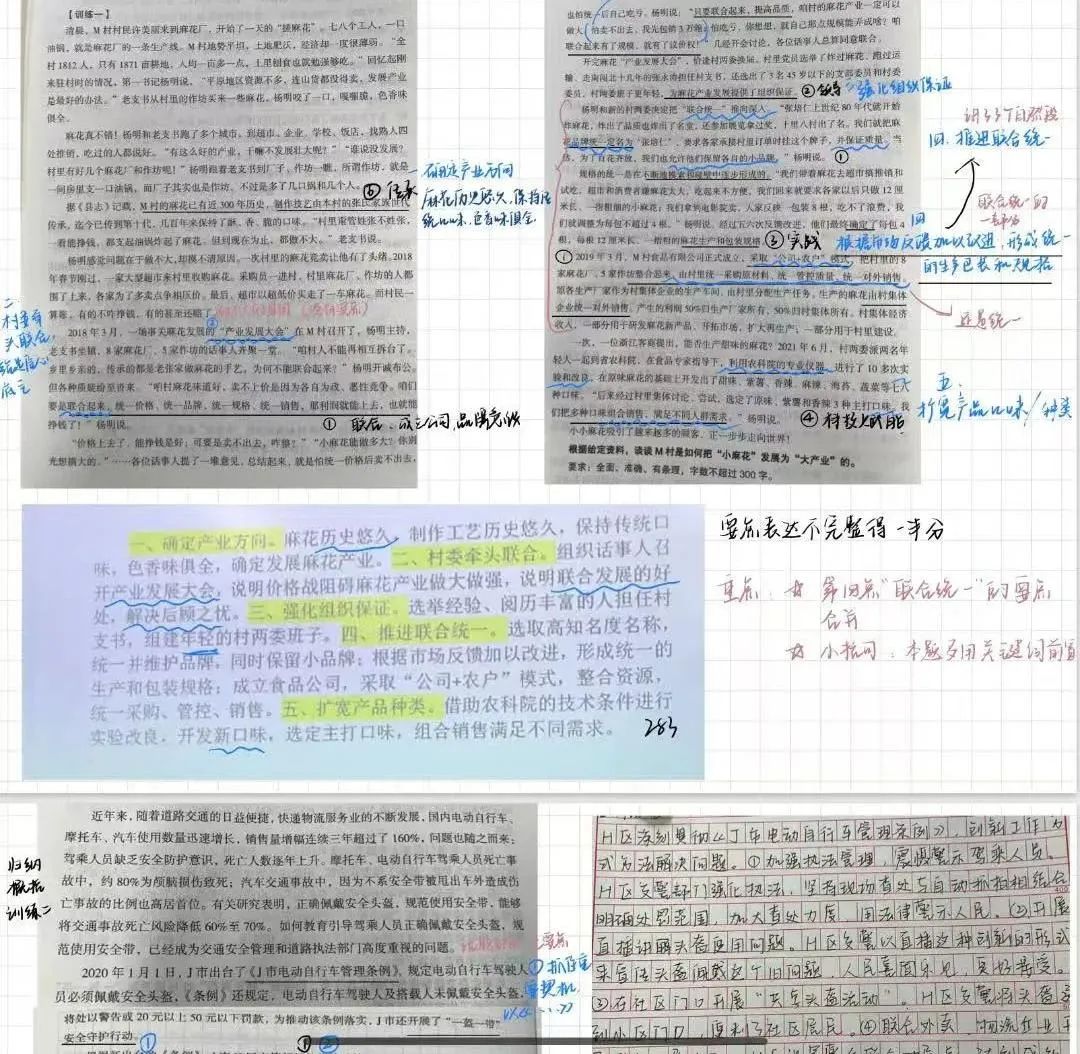 【训练一】
清晨，M村村民许美丽来到麻花厂，开始了一天的“搓麻花”。七八个工人，一口
油锅，就是麻花厂的一条生产线。M村地势平坦，土地肥沃，经济却一度很薄弱。“全
村1812人，只有1871亩耕地，人均一亩多一点，土里刨食也就勉强够吃。”回忆起刚
来驻村时的情况，第一书记杨明说，“平原地区资源不多，连山货都没得卖，发展产业
是最好的办法。”老支书从村里的作坊买来一些麻花，杨明咬了一口，嘎嘣脆，色香味
俱全。
麻花真不错！杨明和老支书跑了多个城市，到超市、企业、学校、饭店，找熟人四
处推销，吃过的人都说好。“有这么好的产业，干嘛不发展壮大呢？”“谁说没发展？
村里有好几个麻花厂和作坊呢！”杨明跟着老支书到了厂子、作坊一瞧，所谓作坊，就是
一间房里支一口油锅，而厂子其实也是作坊，不过是多了几口锅和几个人。
据《县志》记载，M村的麻花已有近300年历史，制作技艺由本村的张氏家族世代
传承，迄今已传到第十代，几百年来保持了酥、香、脆的口味。“村里重管姓张不姓张，
一看能挣钱，都支起油锅炸起了麻花。但到现在为止，都做不大。”老支书说。
杨明感觉问题在于做不大，却摸不清原因。一次村里的麻花竞卖让他有了头绪。2018
年春节刚过，一家大型超市来村里收购麻花。采购员一进村，村里麻花厂、作坊的人都
围了上来，各家为了多卖点争相压价，最后，超市以超低价买走了一车麻花。而村民一
算账，有的不咋挣钱，有的甚至还赔了
2018年3月，一场事关麻花发展的“产业发展大会”在M村召开了，杨明主持，
老支书坐镇，8家麻花厂、5家作坊的话事人齐聚一堂。“咱村人不能再相互拆台了。
乡里乡亲的，传承的都是老张家做麻花的手艺，为何不能联合起来？”杨明开诚布公。
但各种质疑纷至沓来。“咱村麻花味道好，卖不上价是因为各自为政、恶性竞争。咱们
要是联合起来，统一价格、统一品牌、统一规格、统一销售，那利润就能上去，也就能
挣钱了！”杨明说。
“价格上去了，能挣钱是好；可要是卖不出去，咋整？”“小麻花能做多大？你别
光想搞大的。”……各位话事人提了一堆意见，总结起来，就是怕统一价格后卖不出去，
⑥ 传承
确定产业方向
麻花历史悠久，保持传
统口味，色香味俱全
二、
村委牵
头联合
① 联合：成立公司，品牌竞级
也怕统一后自己吃亏。杨明说，“只要联合起来，提高品质，咱村的麻花产业一定可以
做大！怕卖不出去，我先包销3万箱；怕吃亏，你想想，就自己那点规模能弄成啥？咱
联合起来有了规模，就有了议价权！”几经开会讨论，各位话事人总算同意联合。
开完麻花“产业发展大会”，恰逢村两委换届。村里党员选举了炸过麻花、跑过运
输、走南闯北十几年的张永帅担任村支书，还选出了3名45岁以下的支部委员和村委
委员，村两委班子更年轻，为麻花产业发展提供了组织保证。
② 领导
强化组织保证
杨明和新的村两委决定把“联合统一”推向深入。“张培仁上世纪80年代就开始
炸麻花，炸出了品质也炸出了名堂，还参加展览拿过奖，十里八村出了名。我们就把麻
花品牌统一定名为‘张培仁’，要求各家承接村里订单时挂这个牌子，并保证质量。当
然，为了百花齐放，我们也允许他们保留各自的小品牌。”杨明说。
规格的统一是在不断地摸索和碰壁中逐步形成的。“我们带着麻花去超市搞推销和
试吃，超市和消费者嫌麻花太大，吃起来不方便，我们回来就要求各家以后只做12厘
米长、一指粗的小麻花；我们拿到电影院卖，人家反映一包装8根，吃不了浪费，我
们就调整为每包不超过4根。”杨明说。经过五六次反馈改进，他们最终确定了每包4
根，每根12厘米长、一指粗的麻花生产和包装规格。
③ 实战
四 根据市场反馈加以改进，形成统一
的生产包装和规格
2019年3月，M村食品有限公司正式成立，采取“公司+农户”模式，把村里的8
家麻花厂、5家作坊整合起来，由村里统一采购原材料，统一管控质量，统一对外销售。
原各生产厂家作为村集体企业的生产车间，由村里分配生产任务，生产的麻花由村集体
企业统一对外销售，产生的利润50%归生产厂家所有，50%归村集体所有。村集体经济
收入，一部分用于研发麻花新产品、开拓市场、扩大再生产，一部分用于村里建设。
一次，一位浙江客商提出，能否生产甜味的麻花？2021年6月，村两委派两名年
轻人一起到省农科院，在食品专家指导下，利用农科院的专业仪器，进行了10多次实
验和改良，在原味麻花的基础上开发出了甜味、紫薯、香辣、麻辣、海苔、蔬菜等七八
种口味。“后来经过村里集体讨论、尝试，选定了原味、紫薯和香辣3种主打口味，我
们把多种口味组合销售，满足不同人群需求。”杨明说。
④ 科技赋能
小小麻花吸引了越来越多的顾客，正一步步走向世界！
根据给定资料，谈谈M村是如何把“小麻花”发展为“大产业”的。
要求：全面、准确、有条理，字数不超过300字。
四、推进联合统一
联合统一的
还是统一
五、
扩宽产品口味/种类
一、确定产业方向。麻花历史悠久，制作工艺历史悠久，保持传统口
味，色香味俱全，确定发展麻花产业。二、村委牵头联合。组织话事人召
开产业发展大会，说明价格战阻碍麻花产业做大做强，说明联合发展的好
处，解决后顾之忧。三、强化组织保证。选举经验、阅历丰富的人担任村
支书，组建年轻的村两委班子。四、推进联合统一。选取高知名度名称，
统一并维护品牌，同时保留小品牌；根据市场反馈加以改进，形成统一的
生产和包装规格；成立食品公司，采取“公司+农户”模式，整合资源，
统一采购、管控、销售。五、扩宽产品种类。借助农科院的技术条件进行
实验改良，开发新口味，选定主打口味，组合销售满足不同需求。
283
要点表达不完整得一半分
重点：☆ 第四点“联合统一”的要点
合并
☆ 小标问：本题多用关键词前置
归纳
概括
训练二
近年来，随着道路交通的日益便捷，快递物流服务业的不断发展，国内电动自行车、
摩托车、汽车使用数量迅速增长，销售量增幅连续三年超过了160%，问题也随之而来：
驾乘人员缺乏安全防护意识，死亡人数逐年上升。摩托车、电动自行车驾乘人员死亡事
故中，约80%为颅脑损伤致死；汽车交通事故中，因为不系安全带被甩出车外造成伤
亡事故的比例也高居首位。有关研究表明，正确佩戴安全头盔，规范使用安全带，能够
将交通事故死亡风险降低60%至70%。如何教育引导驾乘人员正确佩戴安全头盔，规
范使用安全带，已经成为交通安全管理和道路执法部门高度重视的问题。
2020年1月1日，J市出台了《J市电动自行车管理条例》，规定电动自行车驾驶人
员必须佩戴安全头盔，《条例》还规定，电动自行车驾驶人及搭载人未佩戴安全头盔，
将处以警告或20元以上50元以下罚款，为推动该条例落实，J市还开展了“一盔一带”
安全守护行动。
H区深刻贯彻《J市电动自行车管理条例》，创新工作方
式方法解决问题。①加强执法管理，震慑警示驾乘人员。
H区交警部门强化执法，坚持现场查处与自动抓拍相结合
明确处罚范围，加大查处力度，用法律警示人民。②开展
直播讲解头盔使用问题。H区交警以直播这种创新的形式
来宣传头盔佩戴这个旧问题，人民喜闻乐见，良好接受。
③在社区门口开展“共享头盔流动”。H区交警将头盔送
到小区门口，便利了社区居民。④联合外卖、物流企业